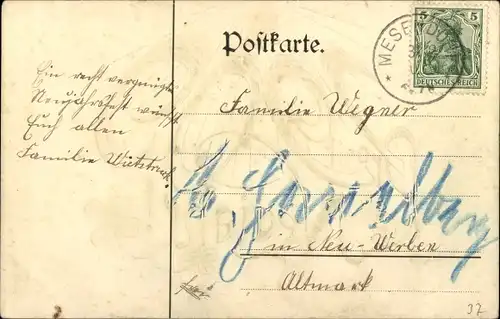 Postkarte.
5 5
DEUTSCHES REICH
MESE
Ein recht vergnügtes
Neujahrsfest wünscht
Euch allen
Familie Wietstruck
Familie Wegner
in Neu-Werben
Altmark
37